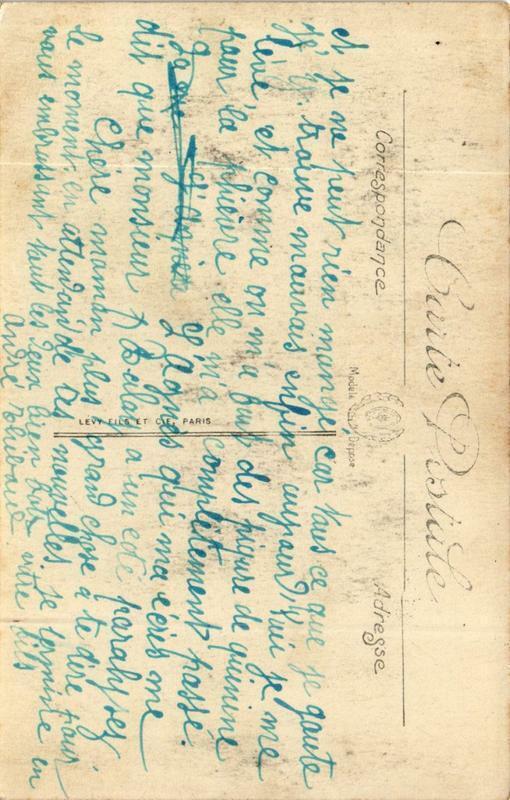 Carte Postale
Modèle Déposé
Correspondance
Adresse
et je ne peut rien mangé, car tous ce que je goute
j'y trouve mauvais enfin aujourd'hui je me
lève, et comme on m'a fait des piqure de quinine
pour la fièvre elle m'a complètement passé.
Agnès qui m'a écris me
dit que monsieur a un coté paralysez
Chère maman plus grand chose à te dire pour
le moment, en attendant de tes nouvelles je termine en
vous embrassant tout les deux bien fort votre fils
André
LEVY FILS ET CIE, PARIS